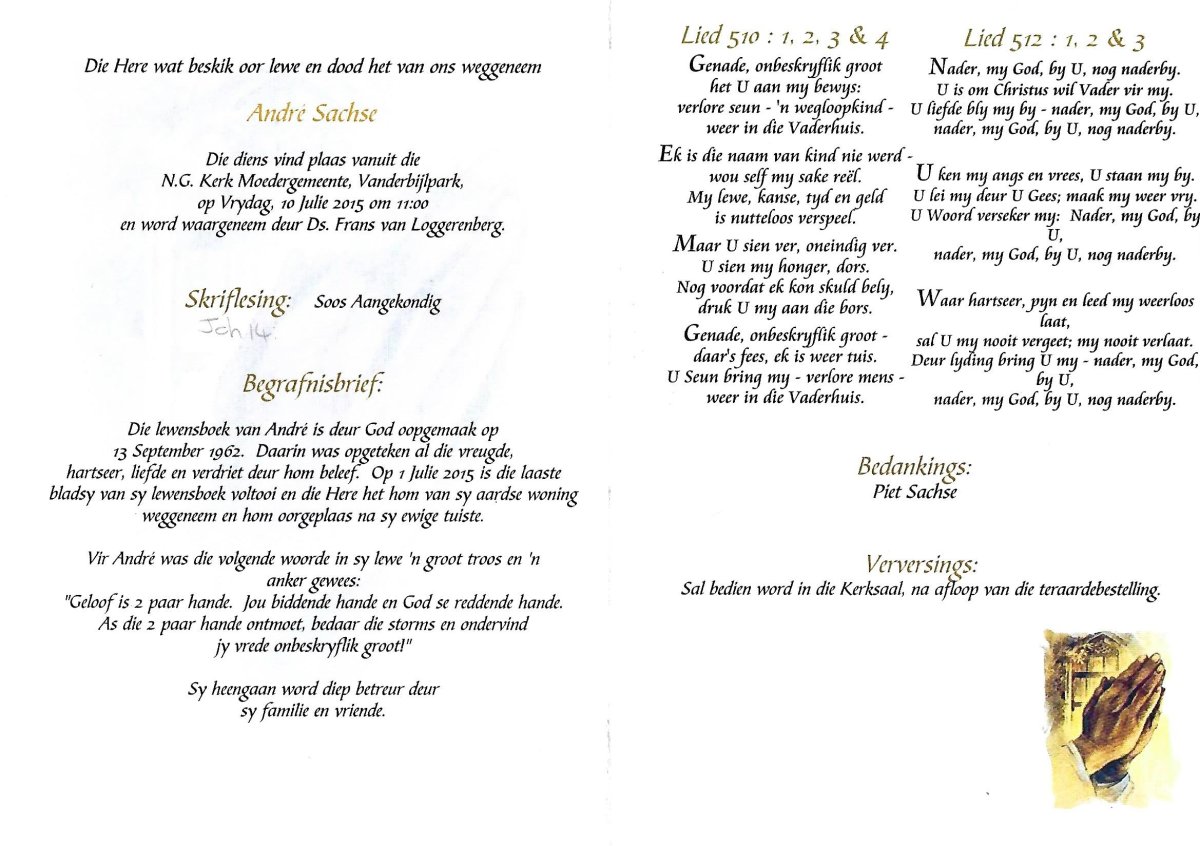 Die Here wat beskik oor lewe en dood het van ons weggeneem
André Sachse
Die diens vind plaas vanuit die
N.G. Kerk Moedergemeente, Vanderbijlpark,
op Vrydag, 10 Julie 2015 om 11:00
en word waargeneem deur Ds. Frans van Loggerenberg.
Skriflesing: Soos Aangekondig
Joh 14:
Begrafnisbrief:
Die lewensboek van André is deur God oopgemaak op
13 September 1962. Daarin was opgeteken al die vreugde,
hartseer, liefde en verdriet deur hom beleef. Op 1 Julie 2015 is die laaste
bladsy van sy lewensboek voltooi en die Here het hom van sy aardse woning
weggeneem en hom oorgeplaas na sy ewige tuiste.
Vir André was die volgende woorde in sy lewe 'n groot troos en 'n
anker gewees:
"Geloof is 2 paar hande. Jou biddende hande en God se reddende hande.
As die 2 paar hande ontmoet, bedaar die storms en ondervind
jy vrede onbeskryflik groot!"
Sy heengaan word diep betreur deur
sy familie en vriende.
Lied 510 : 1, 2, 3 & 4
Genade, onbeskryflik groot
het U aan my bewys:
verlore seun - 'n wegloopkind -
weer in die Vaderhuis.
Ek is die naam van kind nie werd -
wou self my sake reël.
My lewe, kanse, tyd en geld
is nutteloos verspeel.
Maar U sien ver, oneindig ver.
U sien my honger, dors.
Nog voordat ek kon skuld bely,
druk U my aan die bors.
Genade, onbeskryflik groot -
daar's fees, ek is weer tuis.
U Seun bring my - verlore mens -
weer in die Vaderhuis.
Lied 512 : 1, 2 & 3
Nader, my God, by U, nog naderby.
U is om Christus wil Vader vir my.
U liefde bly my by - nader, my God, by U,
nader, my God, by U, nog naderby.
U ken my angs en vrees, U staan my by.
U lei my deur U Gees; maak my weer vry.
U Woord verseker my: Nader, my God, by
U,
nader, my God, by U, nog naderby.
Waar hartseer, pyn en leed my weerloos
laat,
sal U my nooit vergeet; my nooit verlaat.
Deur lyding bring U my - nader, my God,
by U,
nader, my God, by U, nog naderby.
Bedankings:
Piet Sachse
Verversings:
Sal bedien word in die Kerksaal, na afloop van die teraardebestelling.